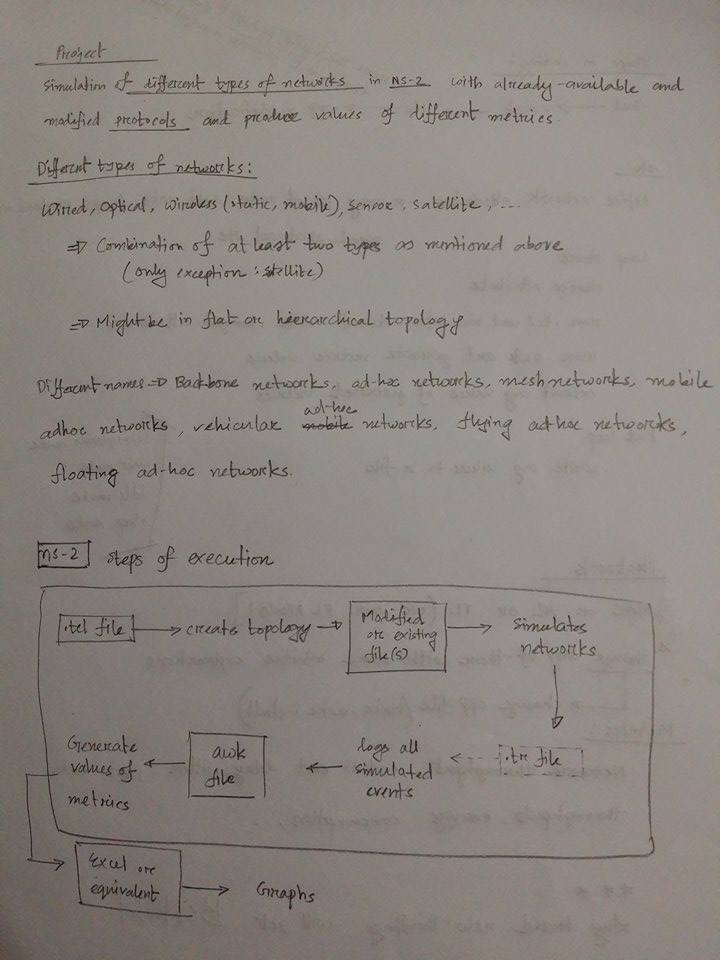 Project
Simulation of different types of networks in NS-2 with already-available and
modified protocols and produce values of different metrics
Different types of networks:
Wired, Optical, wireless (static, mobile), sensor, satellite, ...
=> Combination of at least two types as mentioned above
(only exception : stellite)
=> Might be in flat or hierarchical topology
Different names => Backbone networks, ad-hoc networks, mesh networks, mobile
adhoc networks, vehicular ad-hoc mobile networks, flying ad-hoc networks,
floating ad-hoc networks.
ns-2 steps of execution
.tcl file
creates topology
Modified
or existing
file(s)
Simulates
networks
.tr file
logs all
simulated
events
awk
file
Generate
values of
metrics
Excel or
equivalent
Graphs